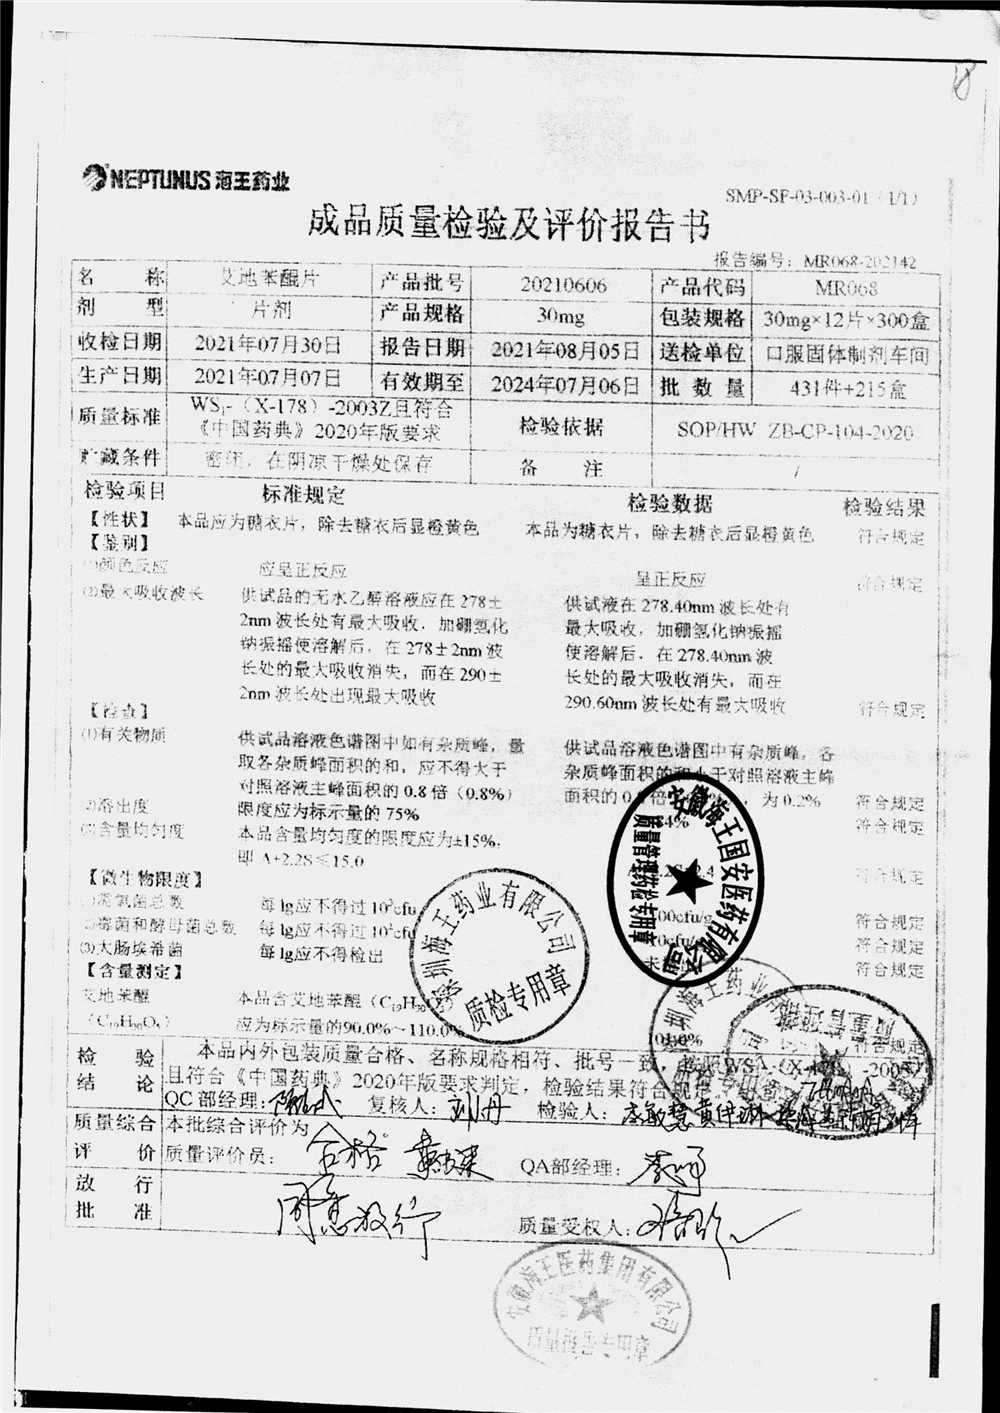 NEPTUNUS 海王药业
SMP-SF-03-003-01（1/1）
成品质量检验及评价报告书
报告编号：MR068-202142
名 称 艾地苯醌片 产品批号 20210606 产品代码 MR068
剂 型 片剂 产品规格 30mg 包装规格 30mg×12片×300盒
收检日期 2021年07月30日 报告日期 2021年08月05日 送检单位 口服固体制剂车间
生产日期 2021年07月07日 有效期至 2024年07月06日 批 数 量 431件+215盒
质量标准 WS₁-（X-178）-2003Z且符合
《中国药典》2020年版要求 检验依据 SOP/HW ZB-CP-104-2020
贮藏条件 密闭，在阴凉干燥处保存 备 注 /
检验项目 标准规定 检验数据 检验结果
【性状】 本品应为糖衣片，除去糖衣后显橙黄色 本品为糖衣片，除去糖衣后显橙黄色 符合规定
【鉴别】
(1)颜色反应 应呈正反应 呈正反应 符合规定
(2)最大吸收波长 供试品的无水乙醇溶液应在278±
2nm波长处有最大吸收，加硼氢化
钠振摇使溶解后，在278±2nm波
长处的最大吸收消失，而在290±
2nm波长处出现最大吸收
供试液在278.40nm波长处有
最大吸收，加硼氢化钠振摇
使溶解后，在278.40nm波
长处的最大吸收消失，而在
290.60nm波长处有最大吸收 符合规定
【检查】
(1)有关物质 供试品溶液色谱图中如有杂质峰，量
取各杂质峰面积的和，应不得大于
对照溶液主峰面积的0.8倍（0.8%）
供试品溶液色谱图中有杂质峰，各
杂质峰面积的和小于对照溶液主峰
面积的0.8倍 ，为0.2% 符合规定
(2)溶出度 限度应为标示量的75% 84% 符合规定
(3)含量均匀度 本品含量均匀度的限度应为±15%，
即 A+2.2S≤15.0 符合规定
【微生物限度】
(1)需氧菌总数 每1g应不得过10³cfu 00cfu/g 符合规定
(2)霉菌和酵母菌总数 每1g应不得过10²cfu 0cfu/g 符合规定
(3)大肠埃希菌 每1g应不得检出 未 符合规定
【含量测定】
艾地苯醌 本品含艾地苯醌（C₁₉H₃₀O₅）
（C₁₉H₃₀O₅） 应为标示量的90.0%～110.0% 符合规定
检 验 本品内外包装质量合格、名称规格相符、批号一致，按照WS₁-（X-178）-2003Z
结 论 且符合《中国药典》2020年版要求判定，检验结果符合规定。
QC部经理： 复核人：刘丹 检验人：
质量综合 本批综合评价为
评 价 质量评价员： 合格 QA部经理：
放 行
批 准 同意放行 质量受权人：
安徽海王国安医药有限公司
质量管理药检专用章
深圳海王药业有限公司
质检专用章
安徽海王医药集团有限公司